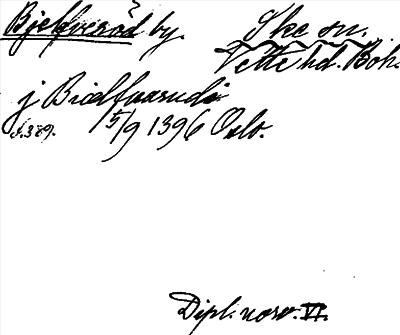 Bjelkeröd by. Ske sn.
Vette hd. Boh.
j Bicelfuarudi
s. 389. 5/9 1396 Oslo.
Dipl. norv. VI.